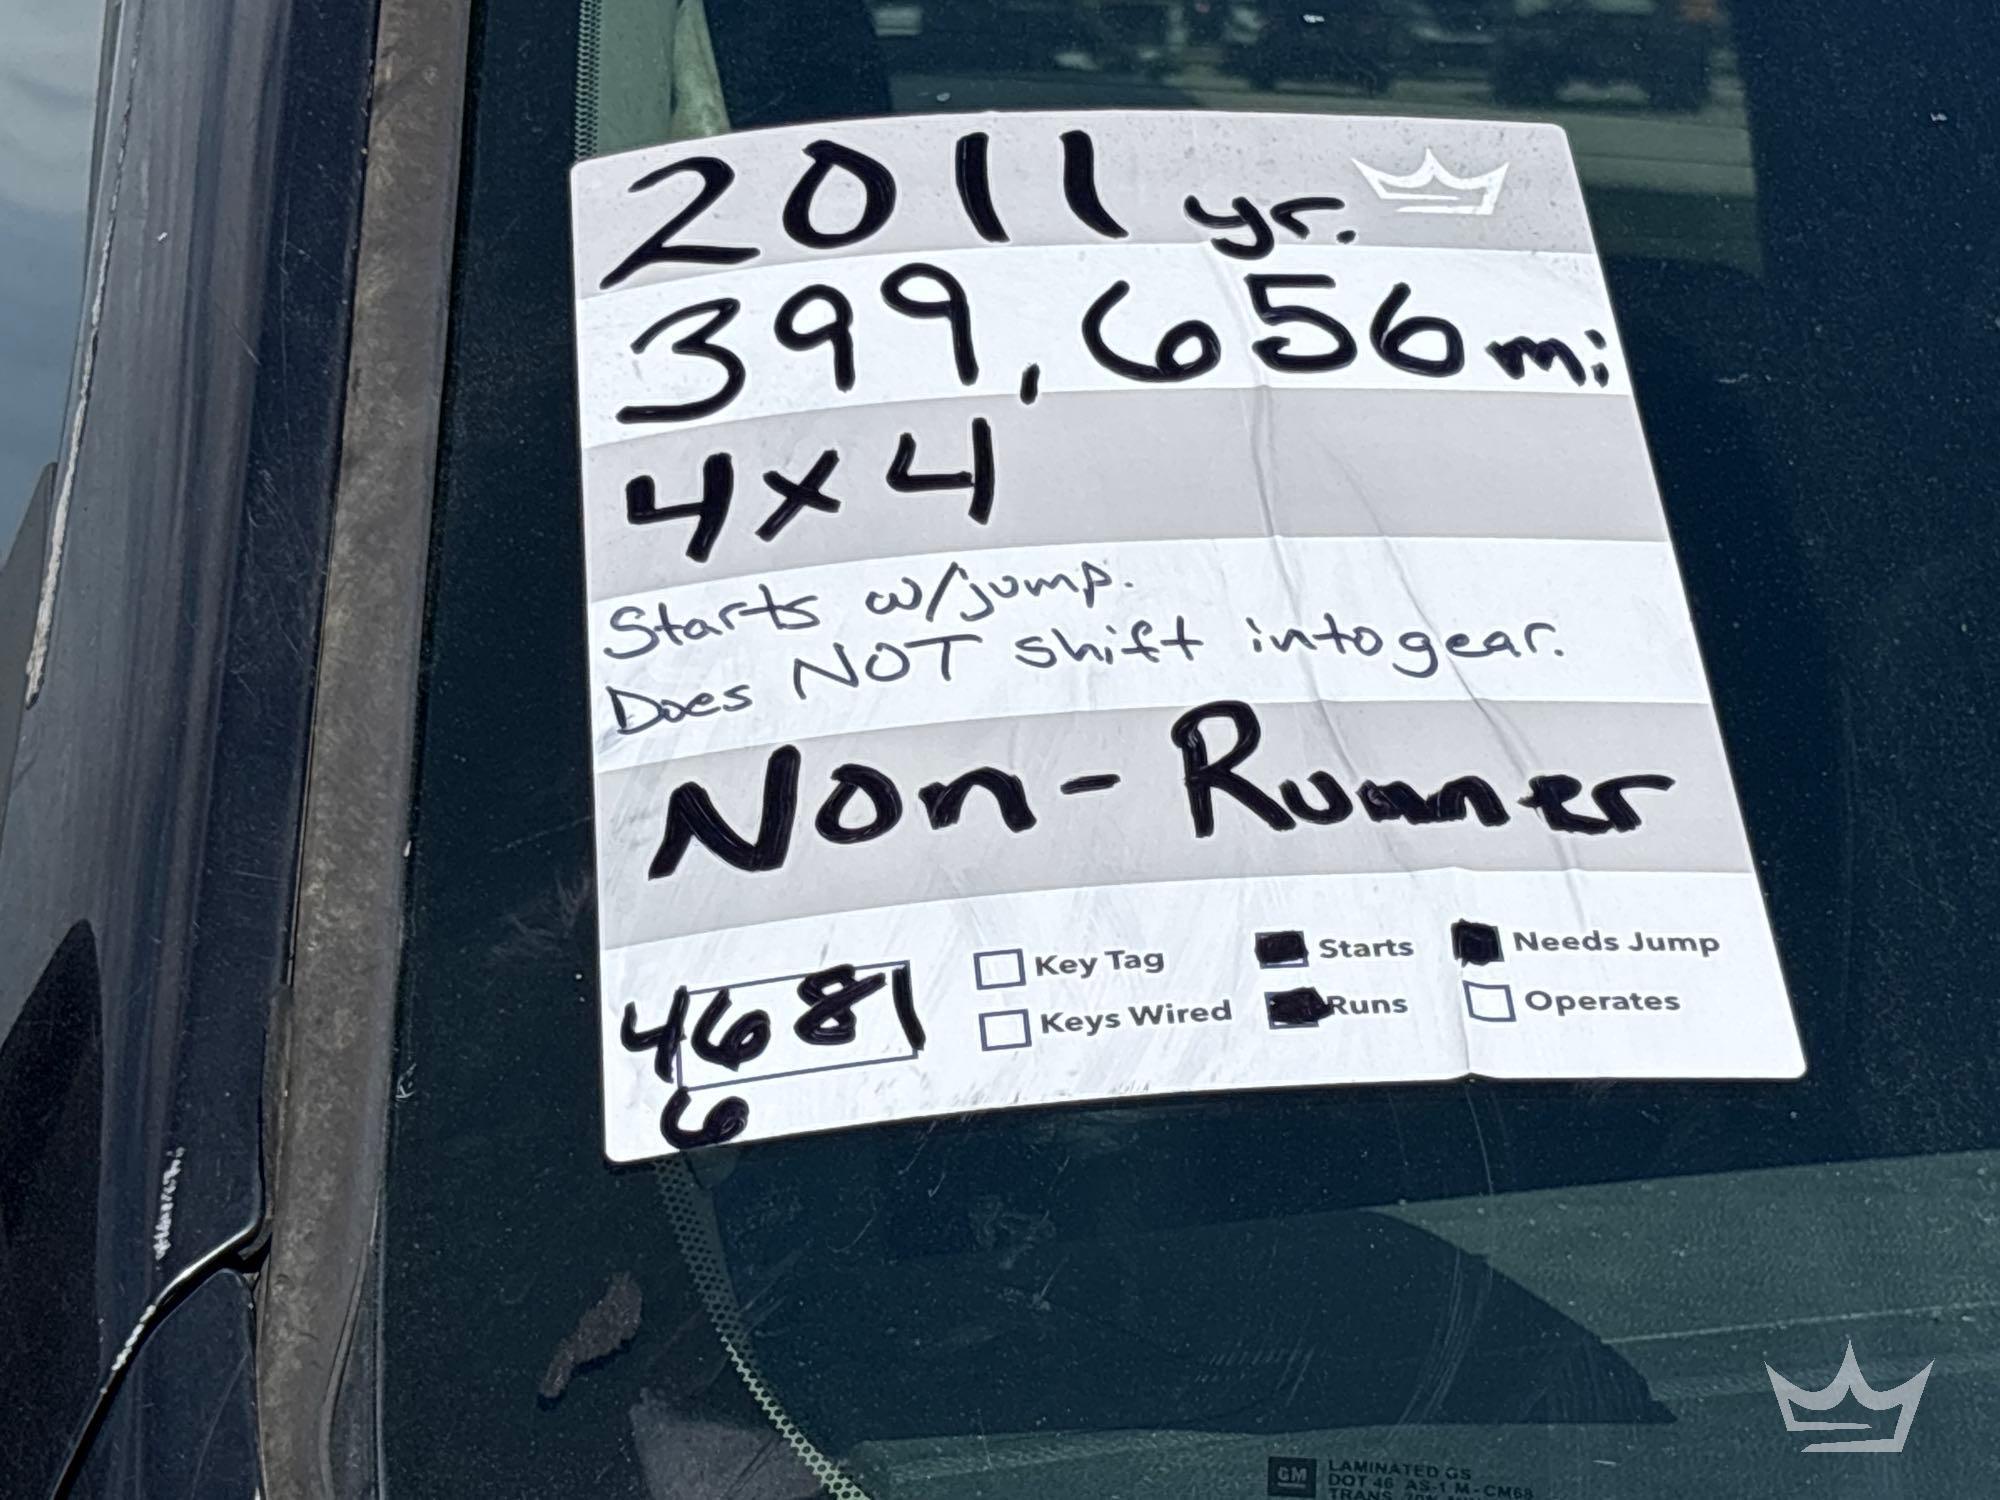 2011 yr.
399,656 mi
4x4
Starts w/jump.
Does NOT shift into gear.
Non-Runner
Key Tag
Starts
Needs Jump
4681
Keys Wired
Runs
Operates
6
GM
LAMINATED GS
DOT 46 AS-1 M-CM68
TRANS. 70%